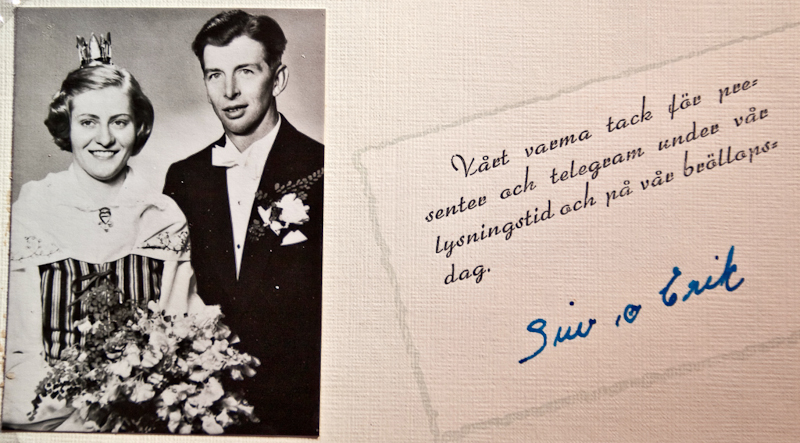 Vårt varma tack för pre=
senter och telegram under vår
lysningstid och på vår bröllops=
dag.
Siv o Erik